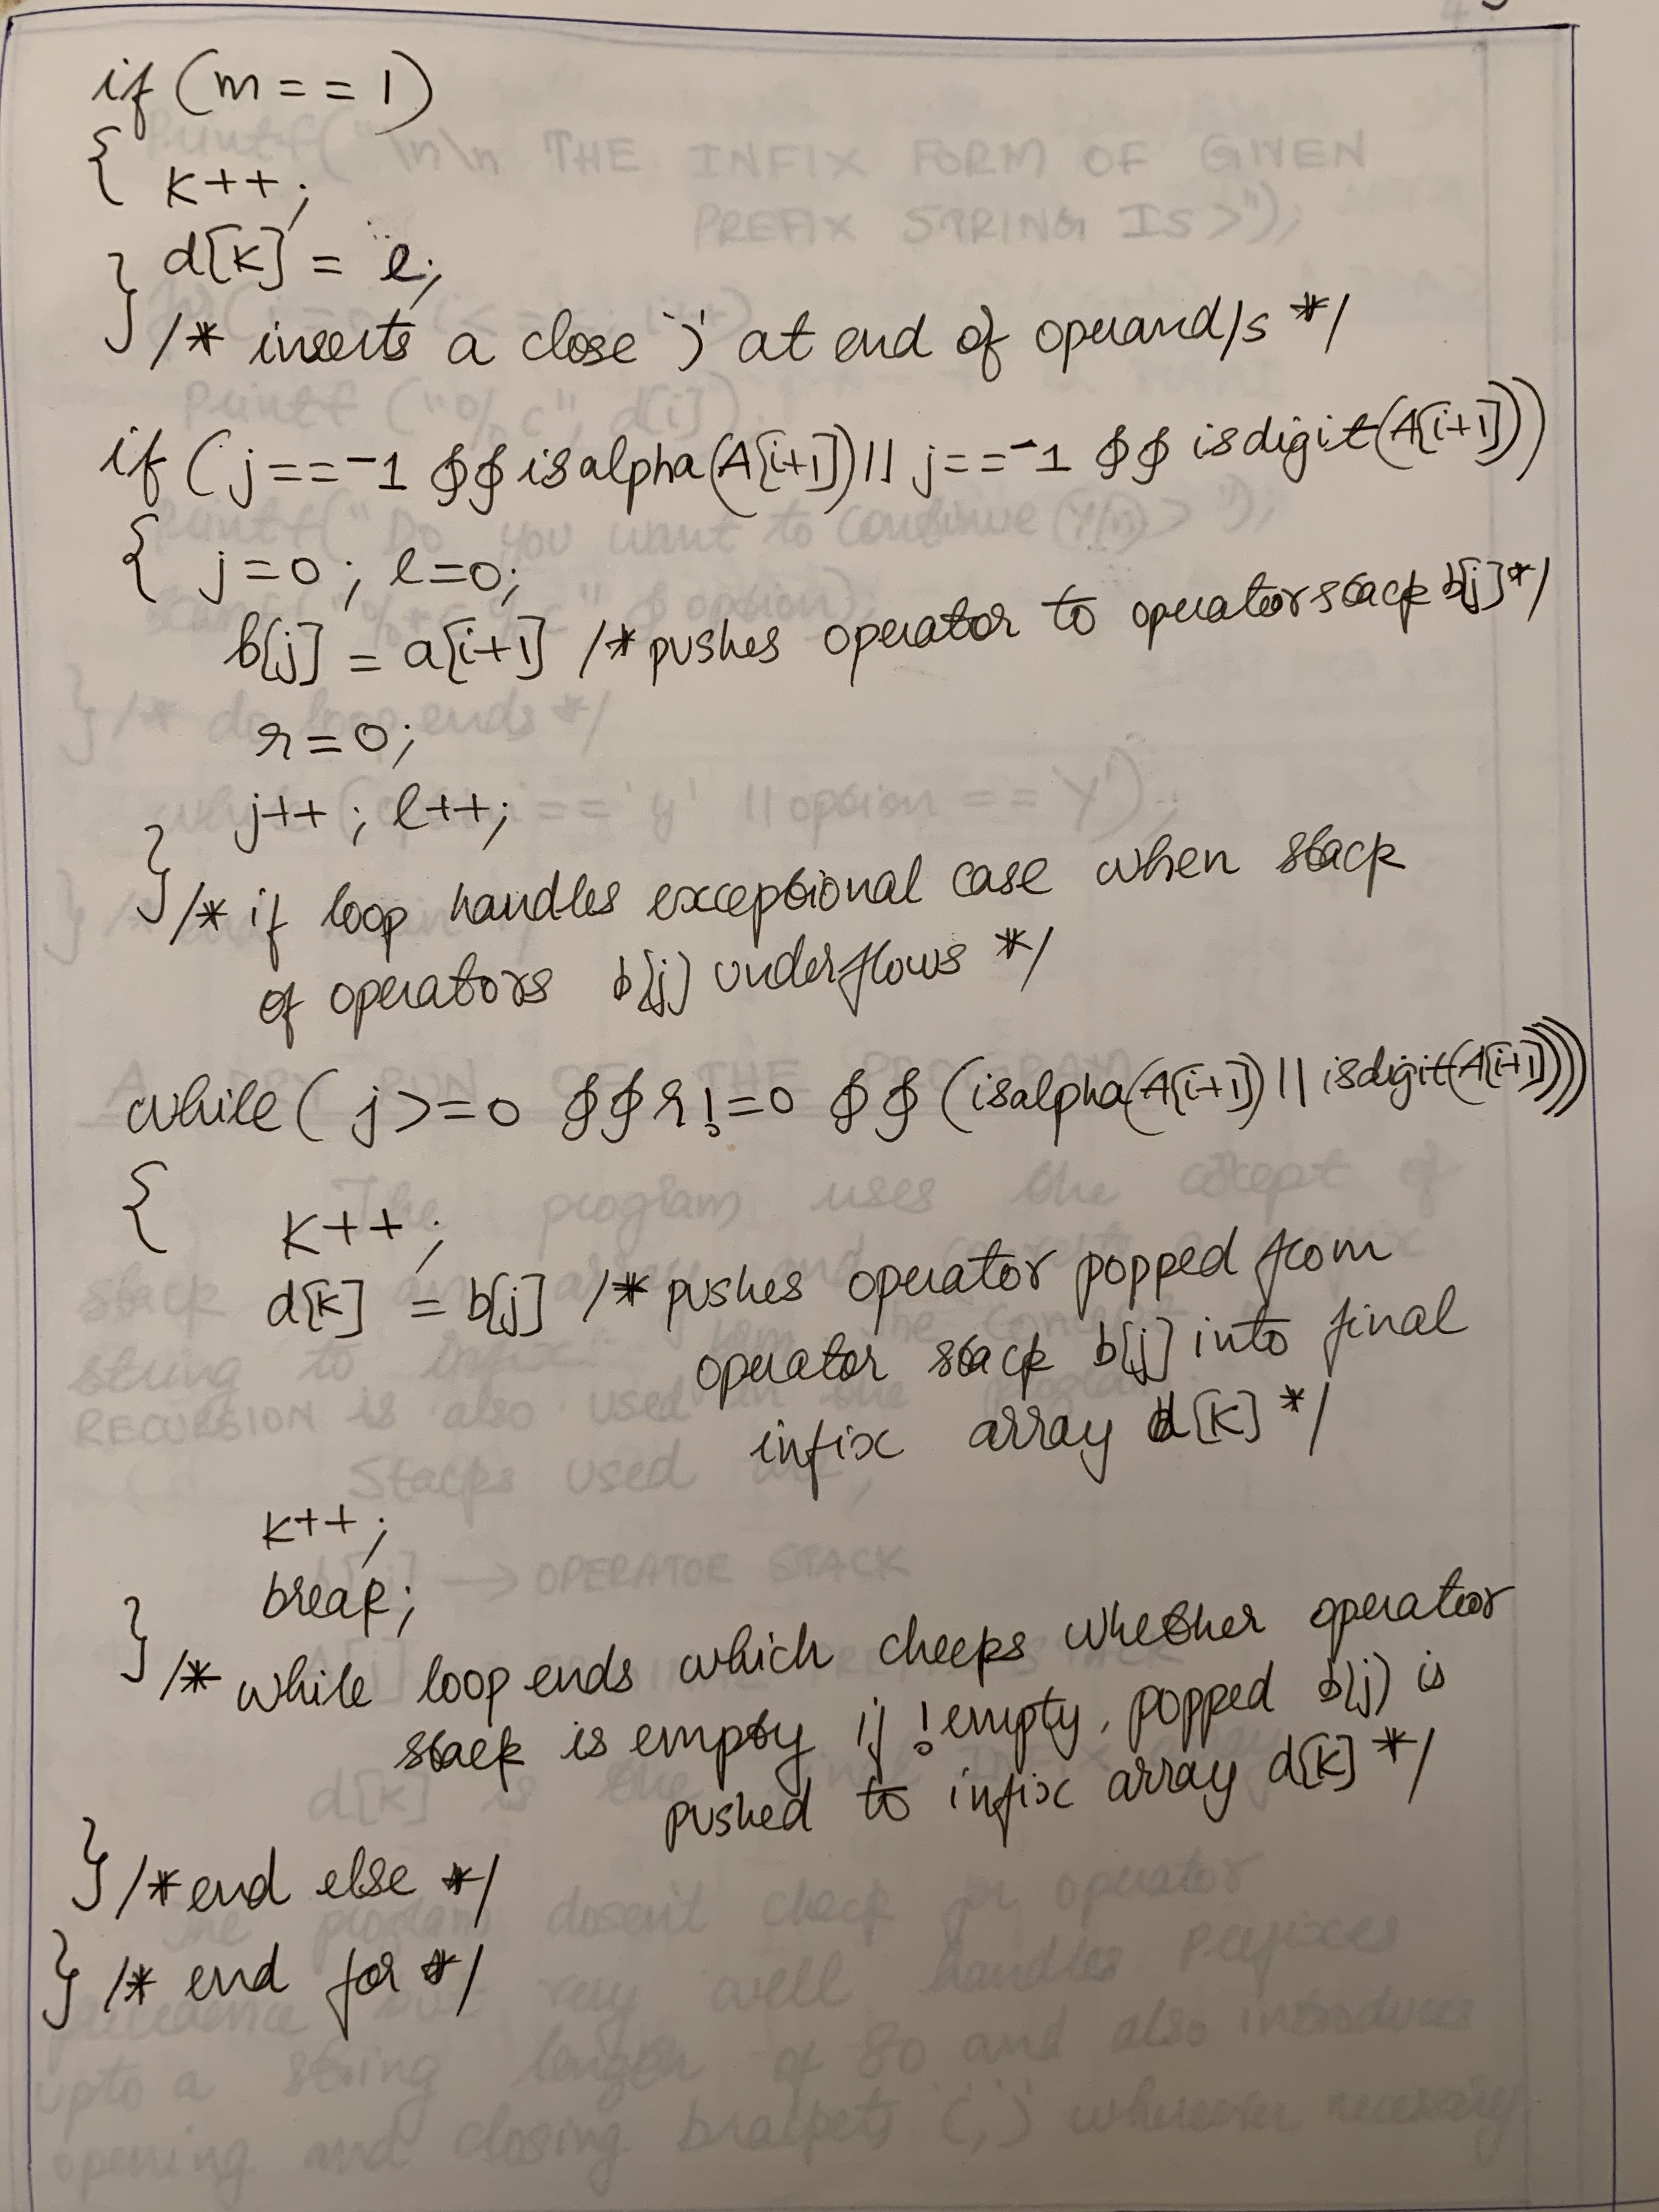 if (m = = 1)
{
K++;
d[K] = e;
} /* inserts a close ')' at end of operand/s */
if ( j==-1 && isalpha(A[i+1]) || j==-1 && isdigit(A[i+1]))
{ j=0 ; l=0;
b[j] = a[i+1] /* pushes operator to operator stack b[j] */
r=0;
j++ ; l++;
} /* if loop handles exceptional case when stack
of operators b[j] underflows */
while ( j>=0 && r!=0 && (isalpha(A[i+1]) || isdigit(A[i+1])))
{
K++;
d[K] = b[j] /* pushes operator popped from
operator stack b[j] into final
infix array d[K] */
K++;
break;
} /* while loop ends which checks whether operator
stack is empty if !empty, popped b(j) is
pushed to infix array d[K] */
} /* end else */
} /* end for */